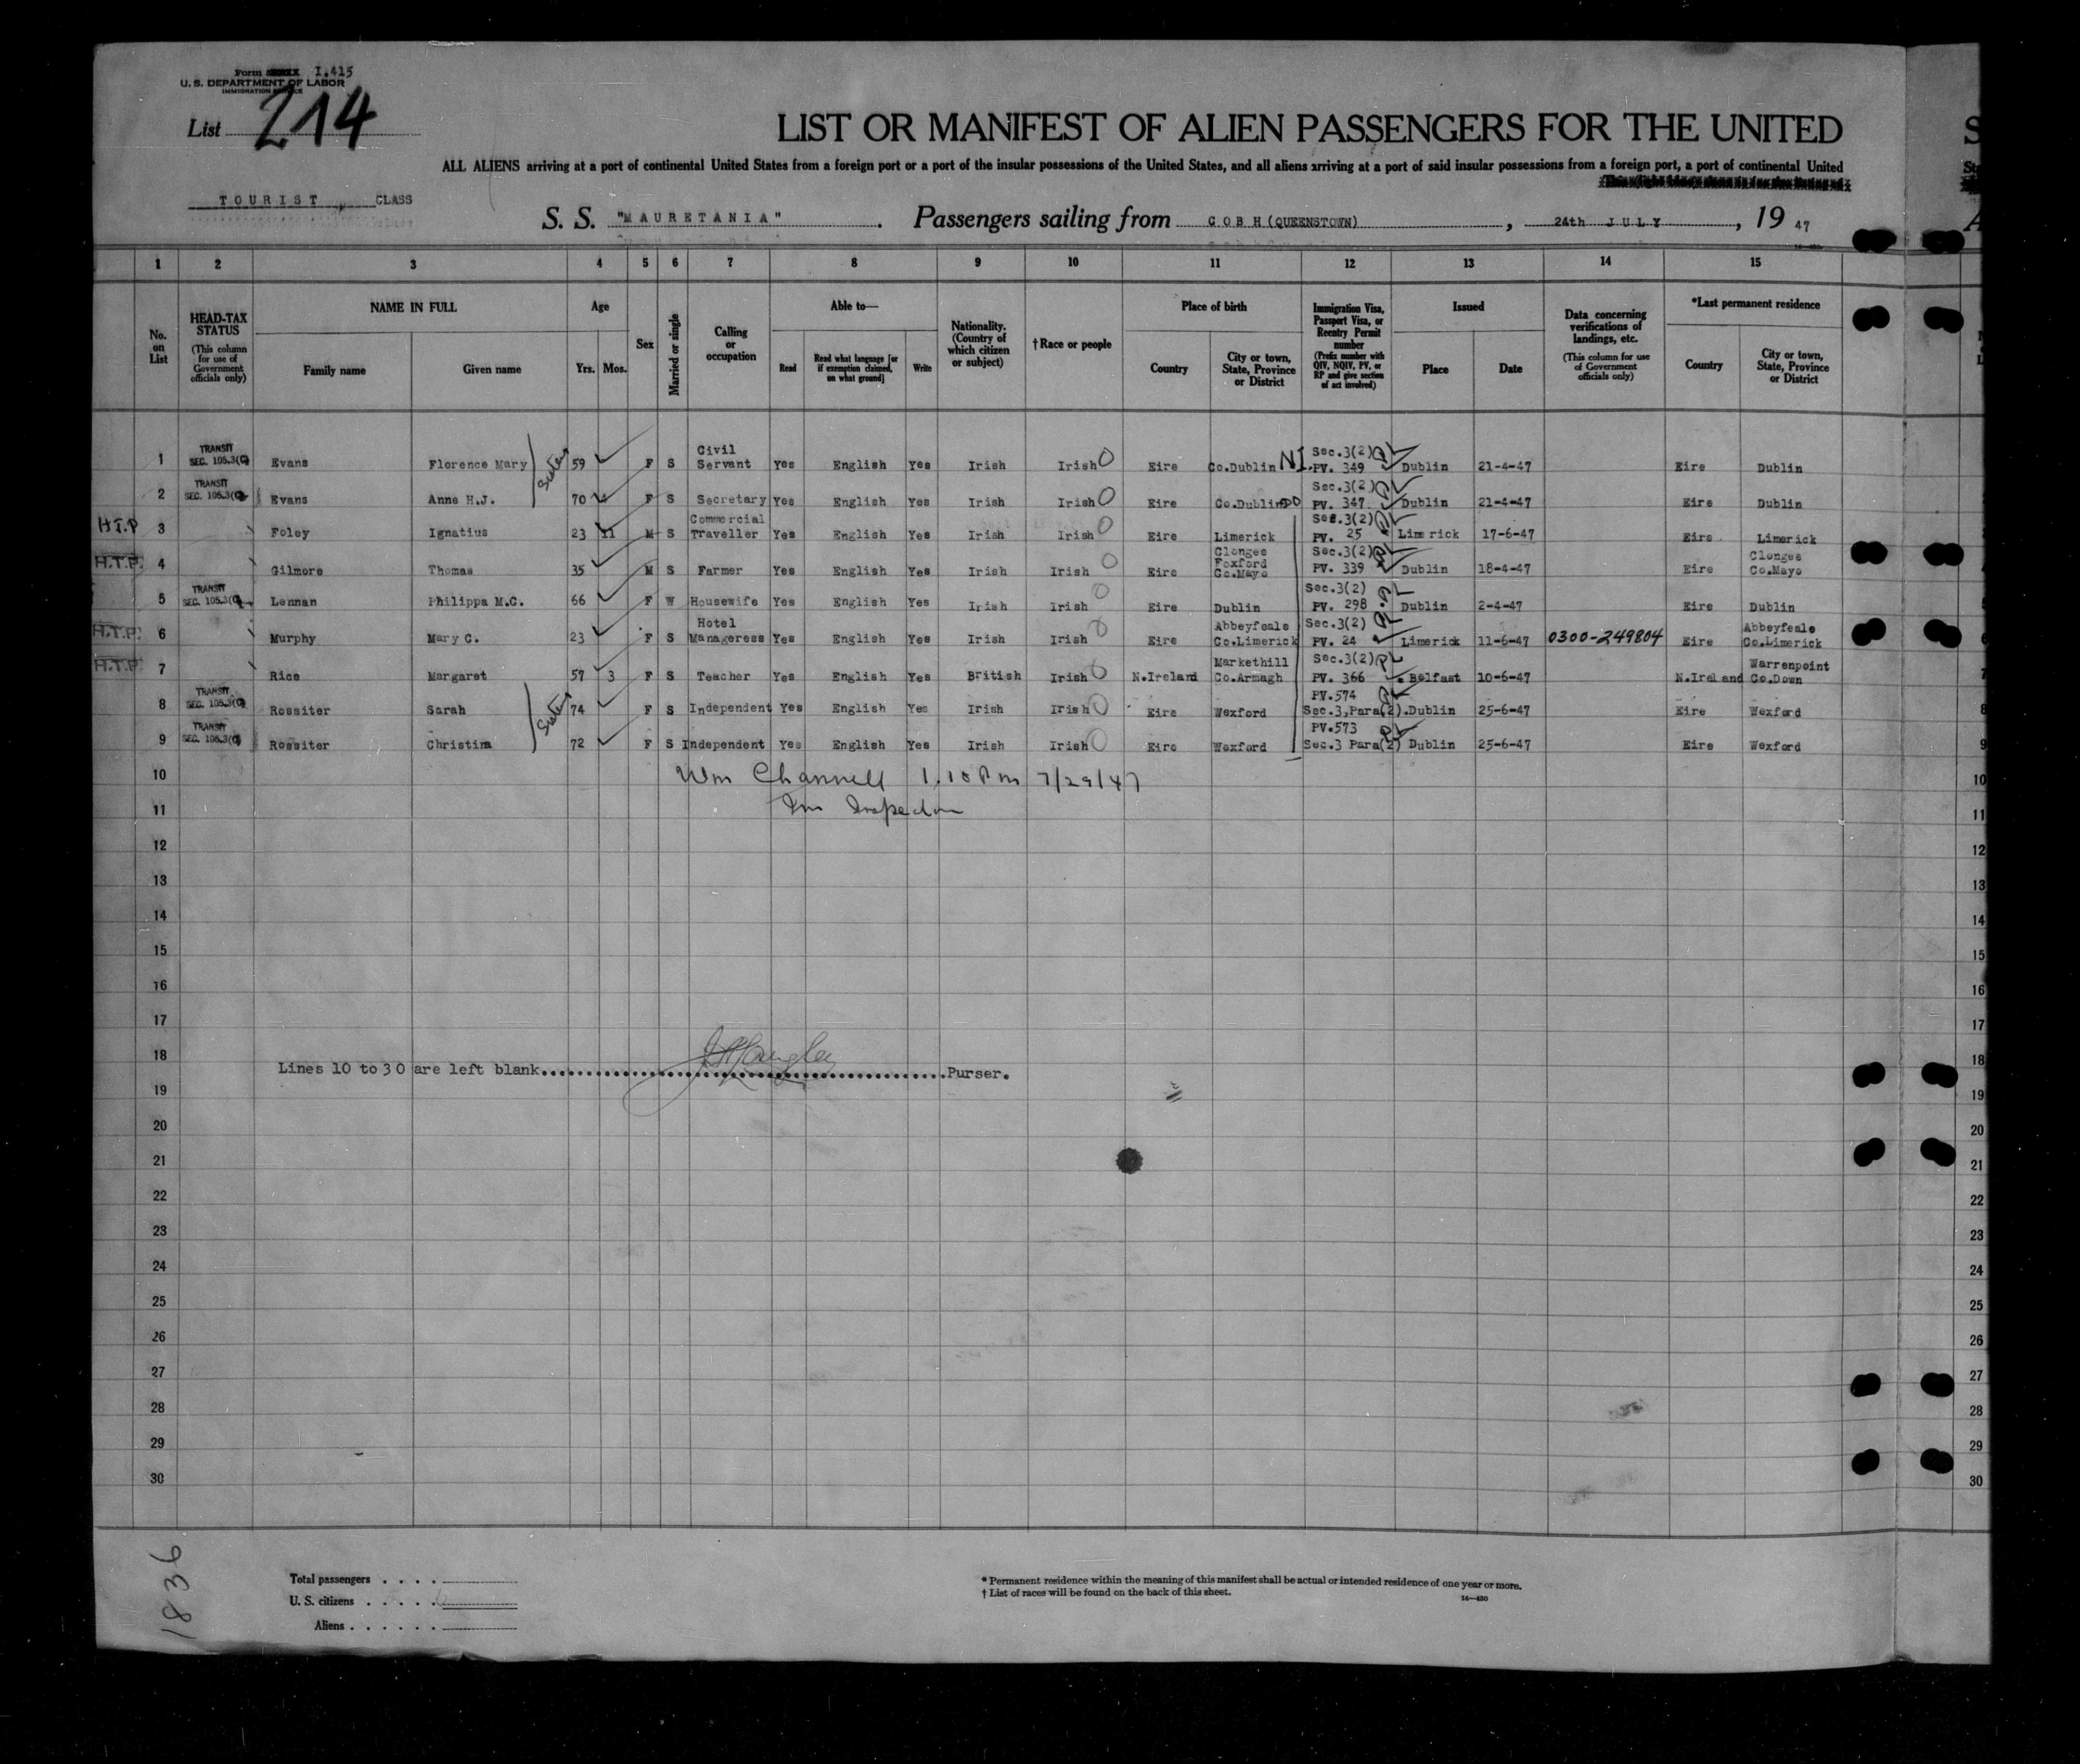 Form I.415
U. S. DEPARTMENT OF LABOR
IMMIGRATION SERVICE
List 214
LIST OR MANIFEST OF ALIEN PASSENGERS FOR THE UNITED
ALL ALIENS arriving at a port of continental United States from a foreign port or a port of the insular possessions of the United States, and all aliens arriving at a port of said insular possessions from a foreign port, a port of continental United
TOURIST CLASS
S. S. "MAURETANIA". Passengers sailing from COBH (QUEENSTOWN), 24th JULY, 19 47
1 2 3 4 5 6 7 8 9 10 11 12 13 14 15
No. on List
HEAD-TAX STATUS (This column for use of Government officials only)
NAME IN FULL
Family name Given name
Age
Yrs. Mos.
Sex
Married or single
Calling or occupation
Able to—
Read Read what language [or if exemption claimed, on what ground] Write
Nationality. (Country of which citizen or subject)
† Race or people
Place of birth
Country City or town, State, Province or District
Immigration Visa, Passport Visa, or Reentry Permit number (Prefix number with QIV, NQIV, PV, or RP and give section of act involved)
Issued
Place Date
Data concerning verifications of landings, etc. (This column for use of Government officials only)
*Last permanent residence
Country City or town, State, Province or District
1 TRANSIT SEC. 105.3(C) Evans Florence Mary Sisters 59 F S Civil Servant Yes English Yes Irish Irish Eire Co.Dublin N.I. Sec.3(2) PV. 349 Dublin 21-4-47 Eire Dublin
2 TRANSIT SEC. 105.3(C) Evans Anne H.J. 70 F S Secretary Yes English Yes Irish Irish Eire Co.Dublin Sec.3(2) PV. 347 Dublin 21-4-47 Eire Dublin
H.T.P 3 Foley Ignatius 23 11 M S Commercial Traveller Yes English Yes Irish Irish Eire Limerick Sec.3(2) PV. 25 Limerick 17-6-47 Eire Limerick
H.T.P. 4 Gilmore Thomas 35 M S Farmer Yes English Yes Irish Irish Eire Clongee Foxford Co.Mayo Sec.3(2) PV. 339 Dublin 18-4-47 Eire Clongee Co.Mayo
5 TRANSIT SEC. 105.3(C) Lennan Philippa M.C. 66 F W Housewife Yes English Yes Irish Irish Eire Dublin Sec.3(2) PV. 298 Dublin 2-4-47 Eire Dublin
H.T.P. 6 Murphy Mary C. 23 F S Hotel Manageress Yes English Yes Irish Irish Eire Abbeyfeale Co.Limerick Sec.3(2) PV. 24 Limerick 11-6-47 0300-249804 Eire Abbeyfeale Co.Limerick
H.T.P. 7 Rice Margaret 57 3 F S Teacher Yes English Yes British Irish N.Ireland Markethill Co.Armagh Sec.3(2) PV. 366 Belfast 10-6-47 N.Ireland Warrenpoint Co.Down
8 TRANSIT SEC. 105.3(C) Rossiter Sarah Sisters 74 F S Independent Yes English Yes Irish Irish Eire Wexford PV.574 Sec.3,Para(2). Dublin 25-6-47 Eire Wexford
9 TRANSIT SEC. 105.3(C) Rossiter Christina 72 F S Independent Yes English Yes Irish Irish Eire Wexford PV.573 Sec.3 Para(2) Dublin 25-6-47 Eire Wexford
10 Wm Channell 1.10 Pm 7/29/47 10
11 Im Inspector 11
12 12
13 13
14 14
15 15
16 16
17 17
18 18
Lines 10 to 30 are left blank Purser.
19 19
20 20
21 21
22 22
23 23
24 24
25 25
26 26
27 27
28 28
29 29
30 30
1836
Total passengers
U. S. citizens
Aliens
* Permanent residence within the meaning of this manifest shall be actual or intended residence of one year or more.
† List of races will be found on the back of this sheet.
14—430